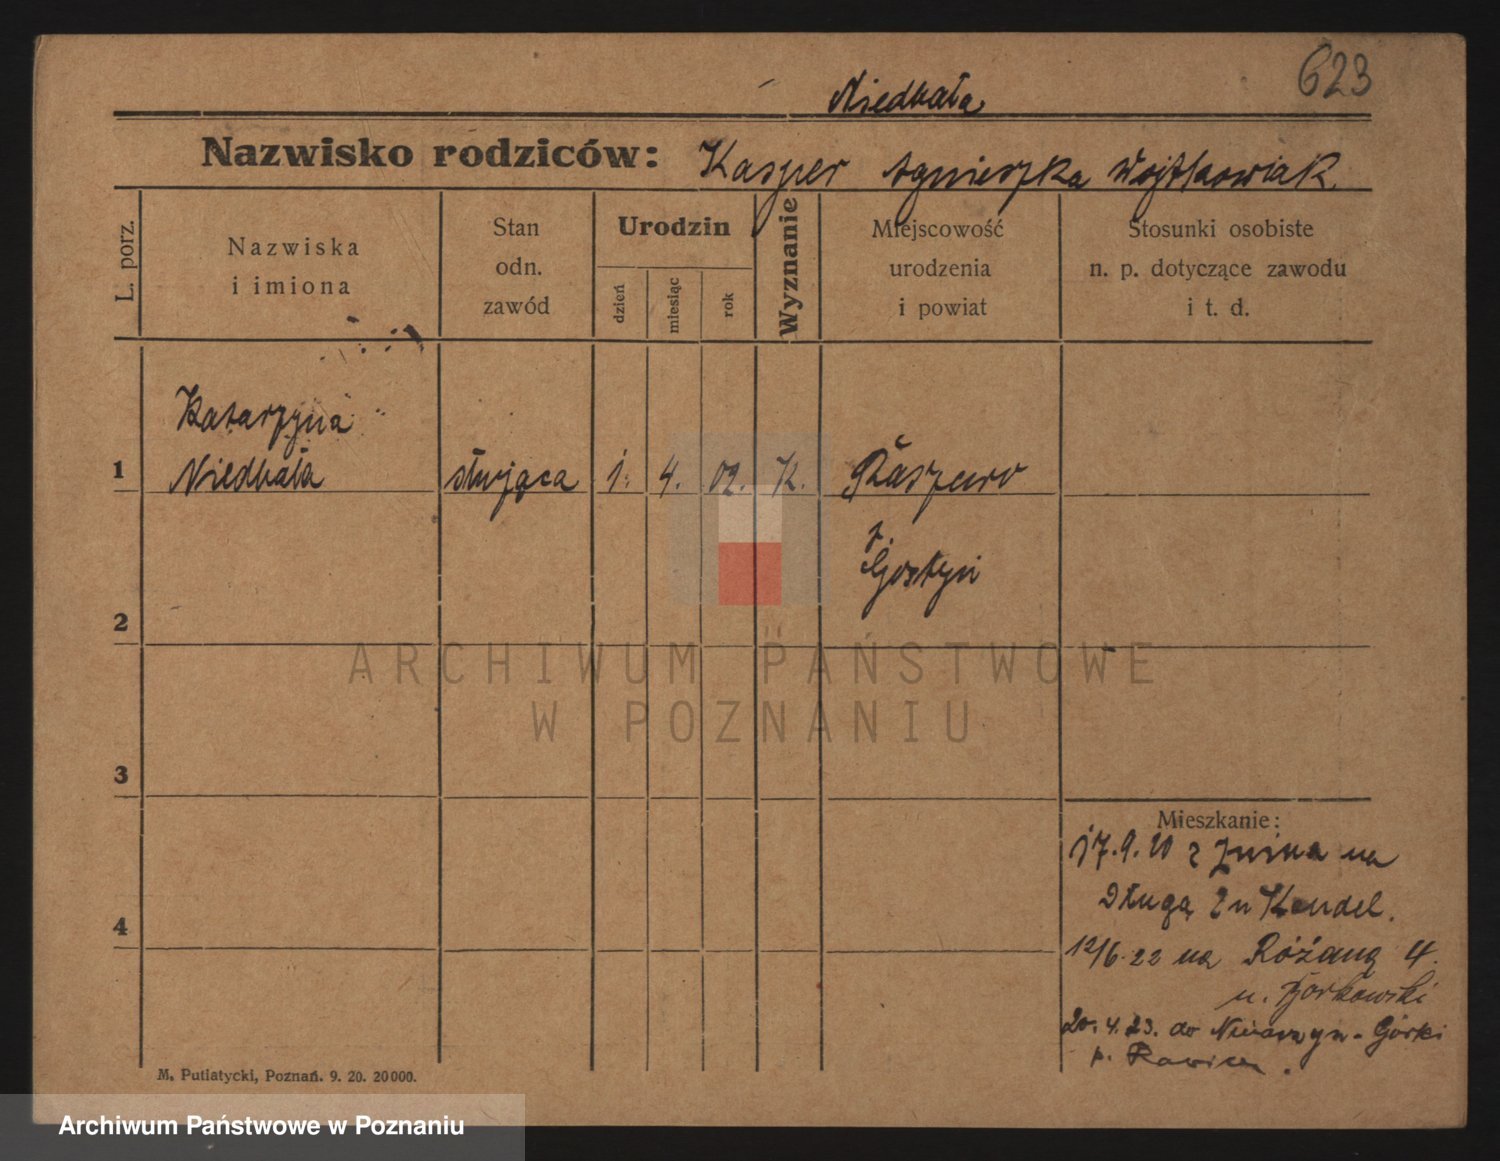 623
Niedbała
Nazwisko rodziców: Kasper Agnieszka Wojtkowiak
L. porz.
Nazwiska
i imiona
Stan
odn.
zawód
Urodzin
dzień
miesiąc
rok
Wyznanie
Miejscowość
urodzenia
i powiat
Stosunki osobiste
n. p. dotyczące zawodu
i t. d.
Katarzyna
1 Niedbała służąca 1. 4. 02. K. Raszewo
p.
Gostyń
2
ARCHIWUM PAŃSTWOWE
W POZNANIU
3
Mieszkanie:
17.9.20 z Żnina na
Długą 2 u Kendel.
4
12/6.22 na Różaną 4.
u. Borkowski
20.4.23. do Górki
p. Rawicz.
M. Putiatycki, Poznań. 9. 20. 20000.
Archiwum Państwowe w Poznaniu